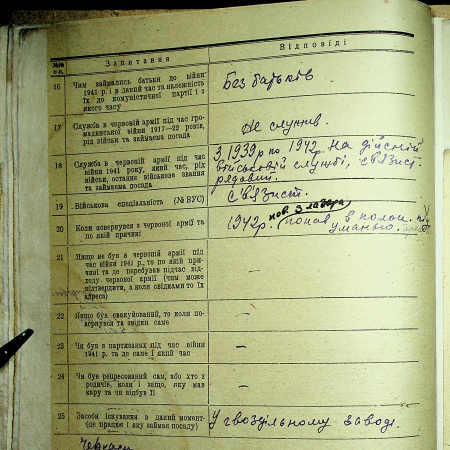 №№ п.п.
Запитання
Відповіді
16
Чим займались батьки до війни
1941 р. і в даний час та належність
їх до комуністичної партії і з
якого часу
Без батьків
17
Служба в червоній армії під час гро-
малянської війни 1917—22 років,
рід військ та займаєма посада
Не служив.
18
Служба в червоній армії під час
війни 1941 року, який час, рід
військ, останнє військове звання
та займаєма посада
З 1939 р по 1942. На дійсній
військовій службі, связист.
рядовий.
19
Військова спеціяльність (№ ВУС)
Связист.
20
Коли повернувся з червоної армії та
по якій причині
пов. з лагера.
1942 р. попав в полон. під
Уманью.
21
Якщо не був в червоній армії під
час війни 1941 р., то по якій при-
чині та де перебував підчас від-
ходу червоної армії (чим може
підтвердити, а коли свідками то їх
адреса)
–
22
Якщо був евакуйований, то коли по-
вернувся та звідки саме
–
23
Чи був в партизанах під час війни
1941 р. та де саме і який час
–
24
Чи був репресований сам, або хто з
родичів, коли і защо, яку мав
кару та чи відбув її
–
25
Засоби існування в даний момент-
(де працює і яку займая посаду)
У гвоздільному заводі.
Черкаси